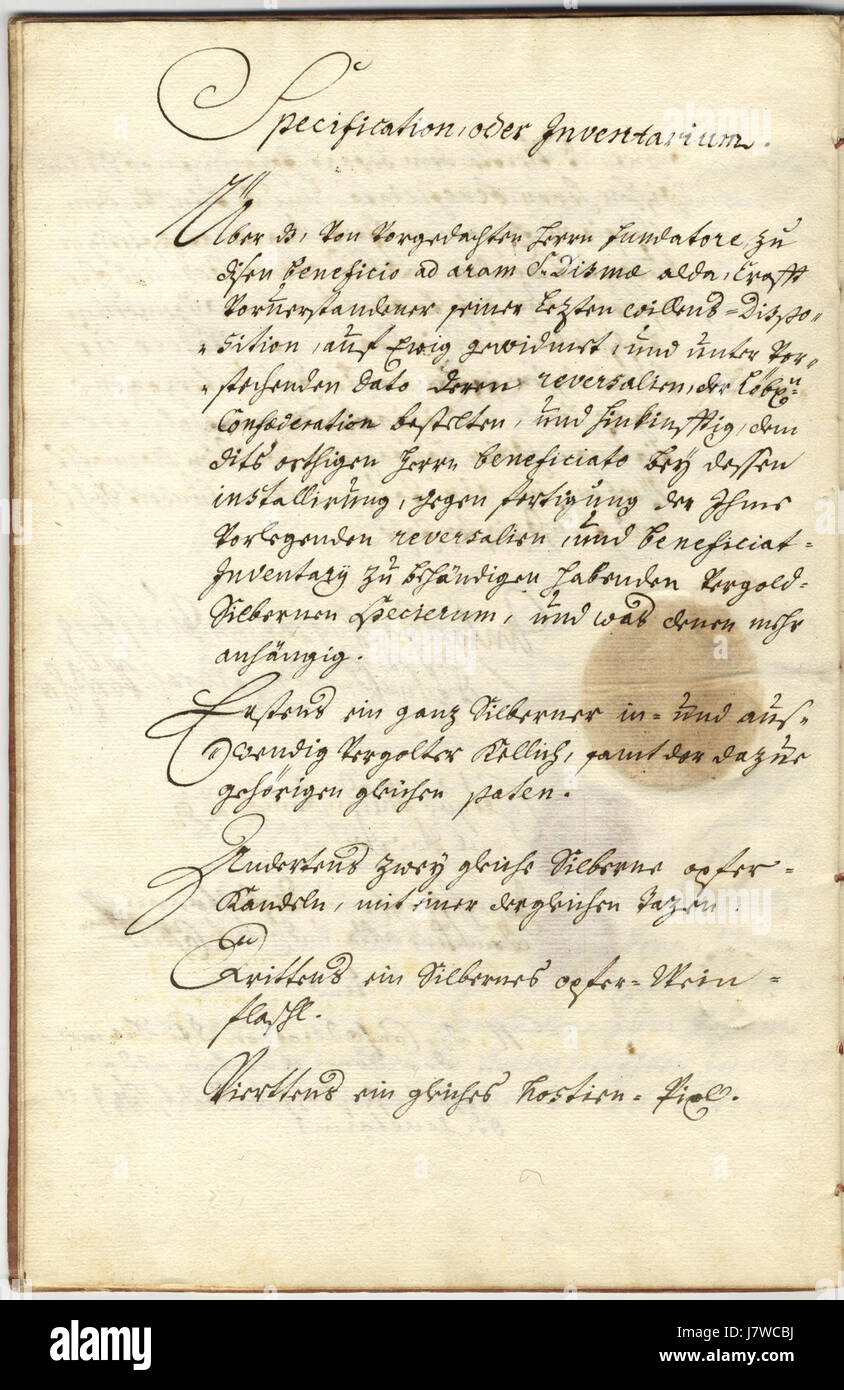 Specification, oder Inventarium.
Über die, von vorgedachten Herrn Fundatore, zu
disen beneficio ad aram S: Dismæ alda, Crafft
vorverstandener seiner letzten willens=Dispo=
=sition, auf Ewig gewidmet, und unter vor=
=stehenden dato deren reversalien, der Löbl:
Confœderation bestelten, und hinkünfftig, dem
dits orthigen Herrn beneficiato bey dessen
installirung, gegen fertigung der Ihme
vorlegenden reversalien, und beneficiat=
Inventary zu behändigen habenden vergold=
Silbernen, und was denen mehr
anhängig.
Erstens ein ganz Silberner in= und aus=
=wendig vergolter Kellich, samt der dazue
gehörigen gleichen paten.
Andertens zwey gleiche Silberne opfer=
Kandeln, mit einer dergleichen Tazen.
Drittens ein Silbernes opfer=Wein=
flaschl.
Vierttens ein gleiches Hostien=Pixl.
alamy
Image ID: J7WCBJ
www.alamy.com